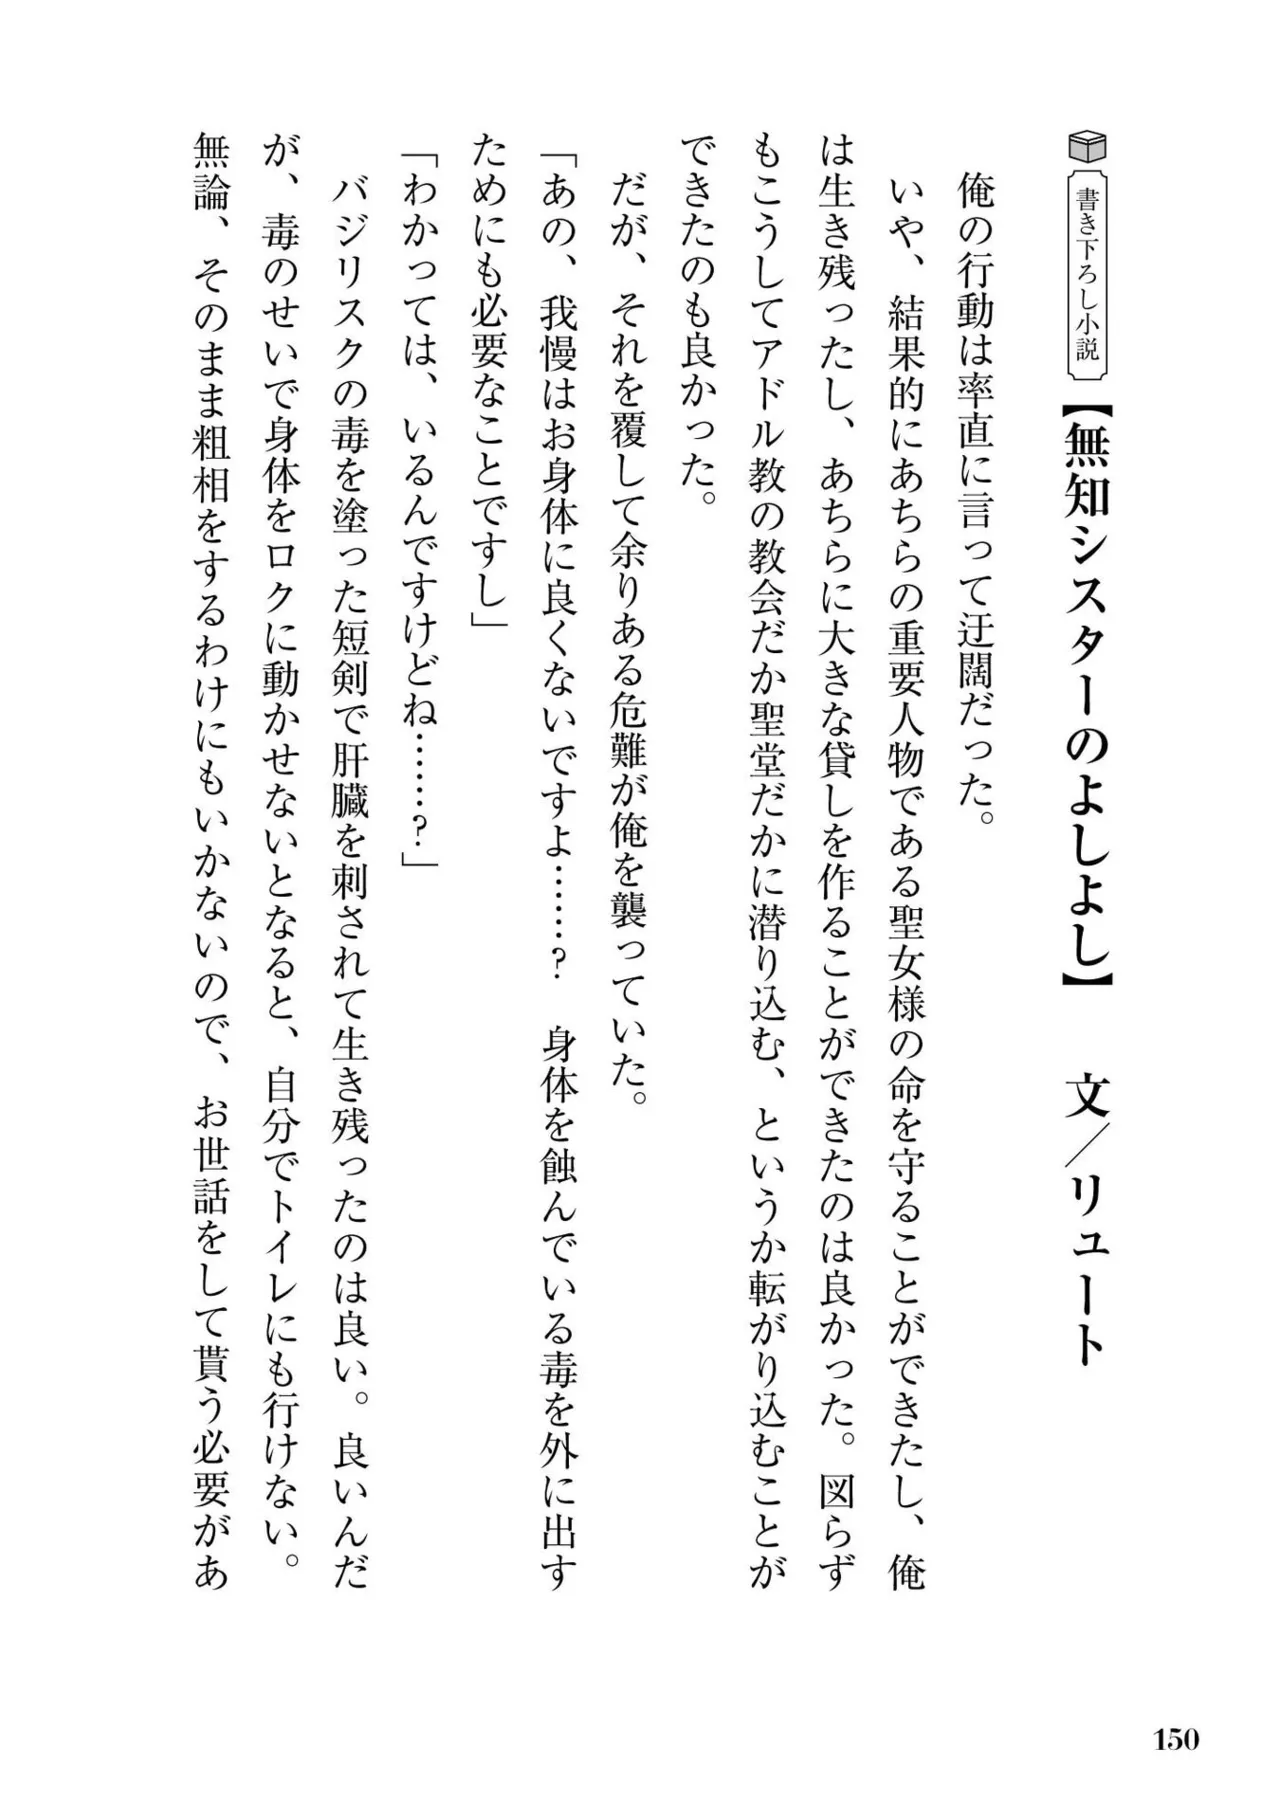 書き下ろし小説
【無知シスターのよしよし】 文／リュート
俺の行動は率直に言って迂闊だった。
いや、結果的にあちらの重要人物である聖女様の命を守ることができたし、俺
は生き残ったし、あちらに大きな貸しを作ることができたのは良かった。図らず
もこうしてアドル教の教会だか聖堂だかに潜り込む、というか転がり込むことが
できたのも良かった。
だが、それを覆して余りある危難が俺を襲っていた。
「あの、我慢はお身体に良くないですよ……？　身体を蝕んでいる毒を外に出す
ためにも必要なことですし」
「わかっては、いるんですけどね……？」
バジリスクの毒を塗った短剣で肝臓を刺されて生き残ったのは良い。良いんだ
が、毒のせいで身体をロクに動かせないとなると、自分でトイレにも行けない。
無論、そのまま粗相をするわけにもいかないので、お世話をして貰う必要があ
150